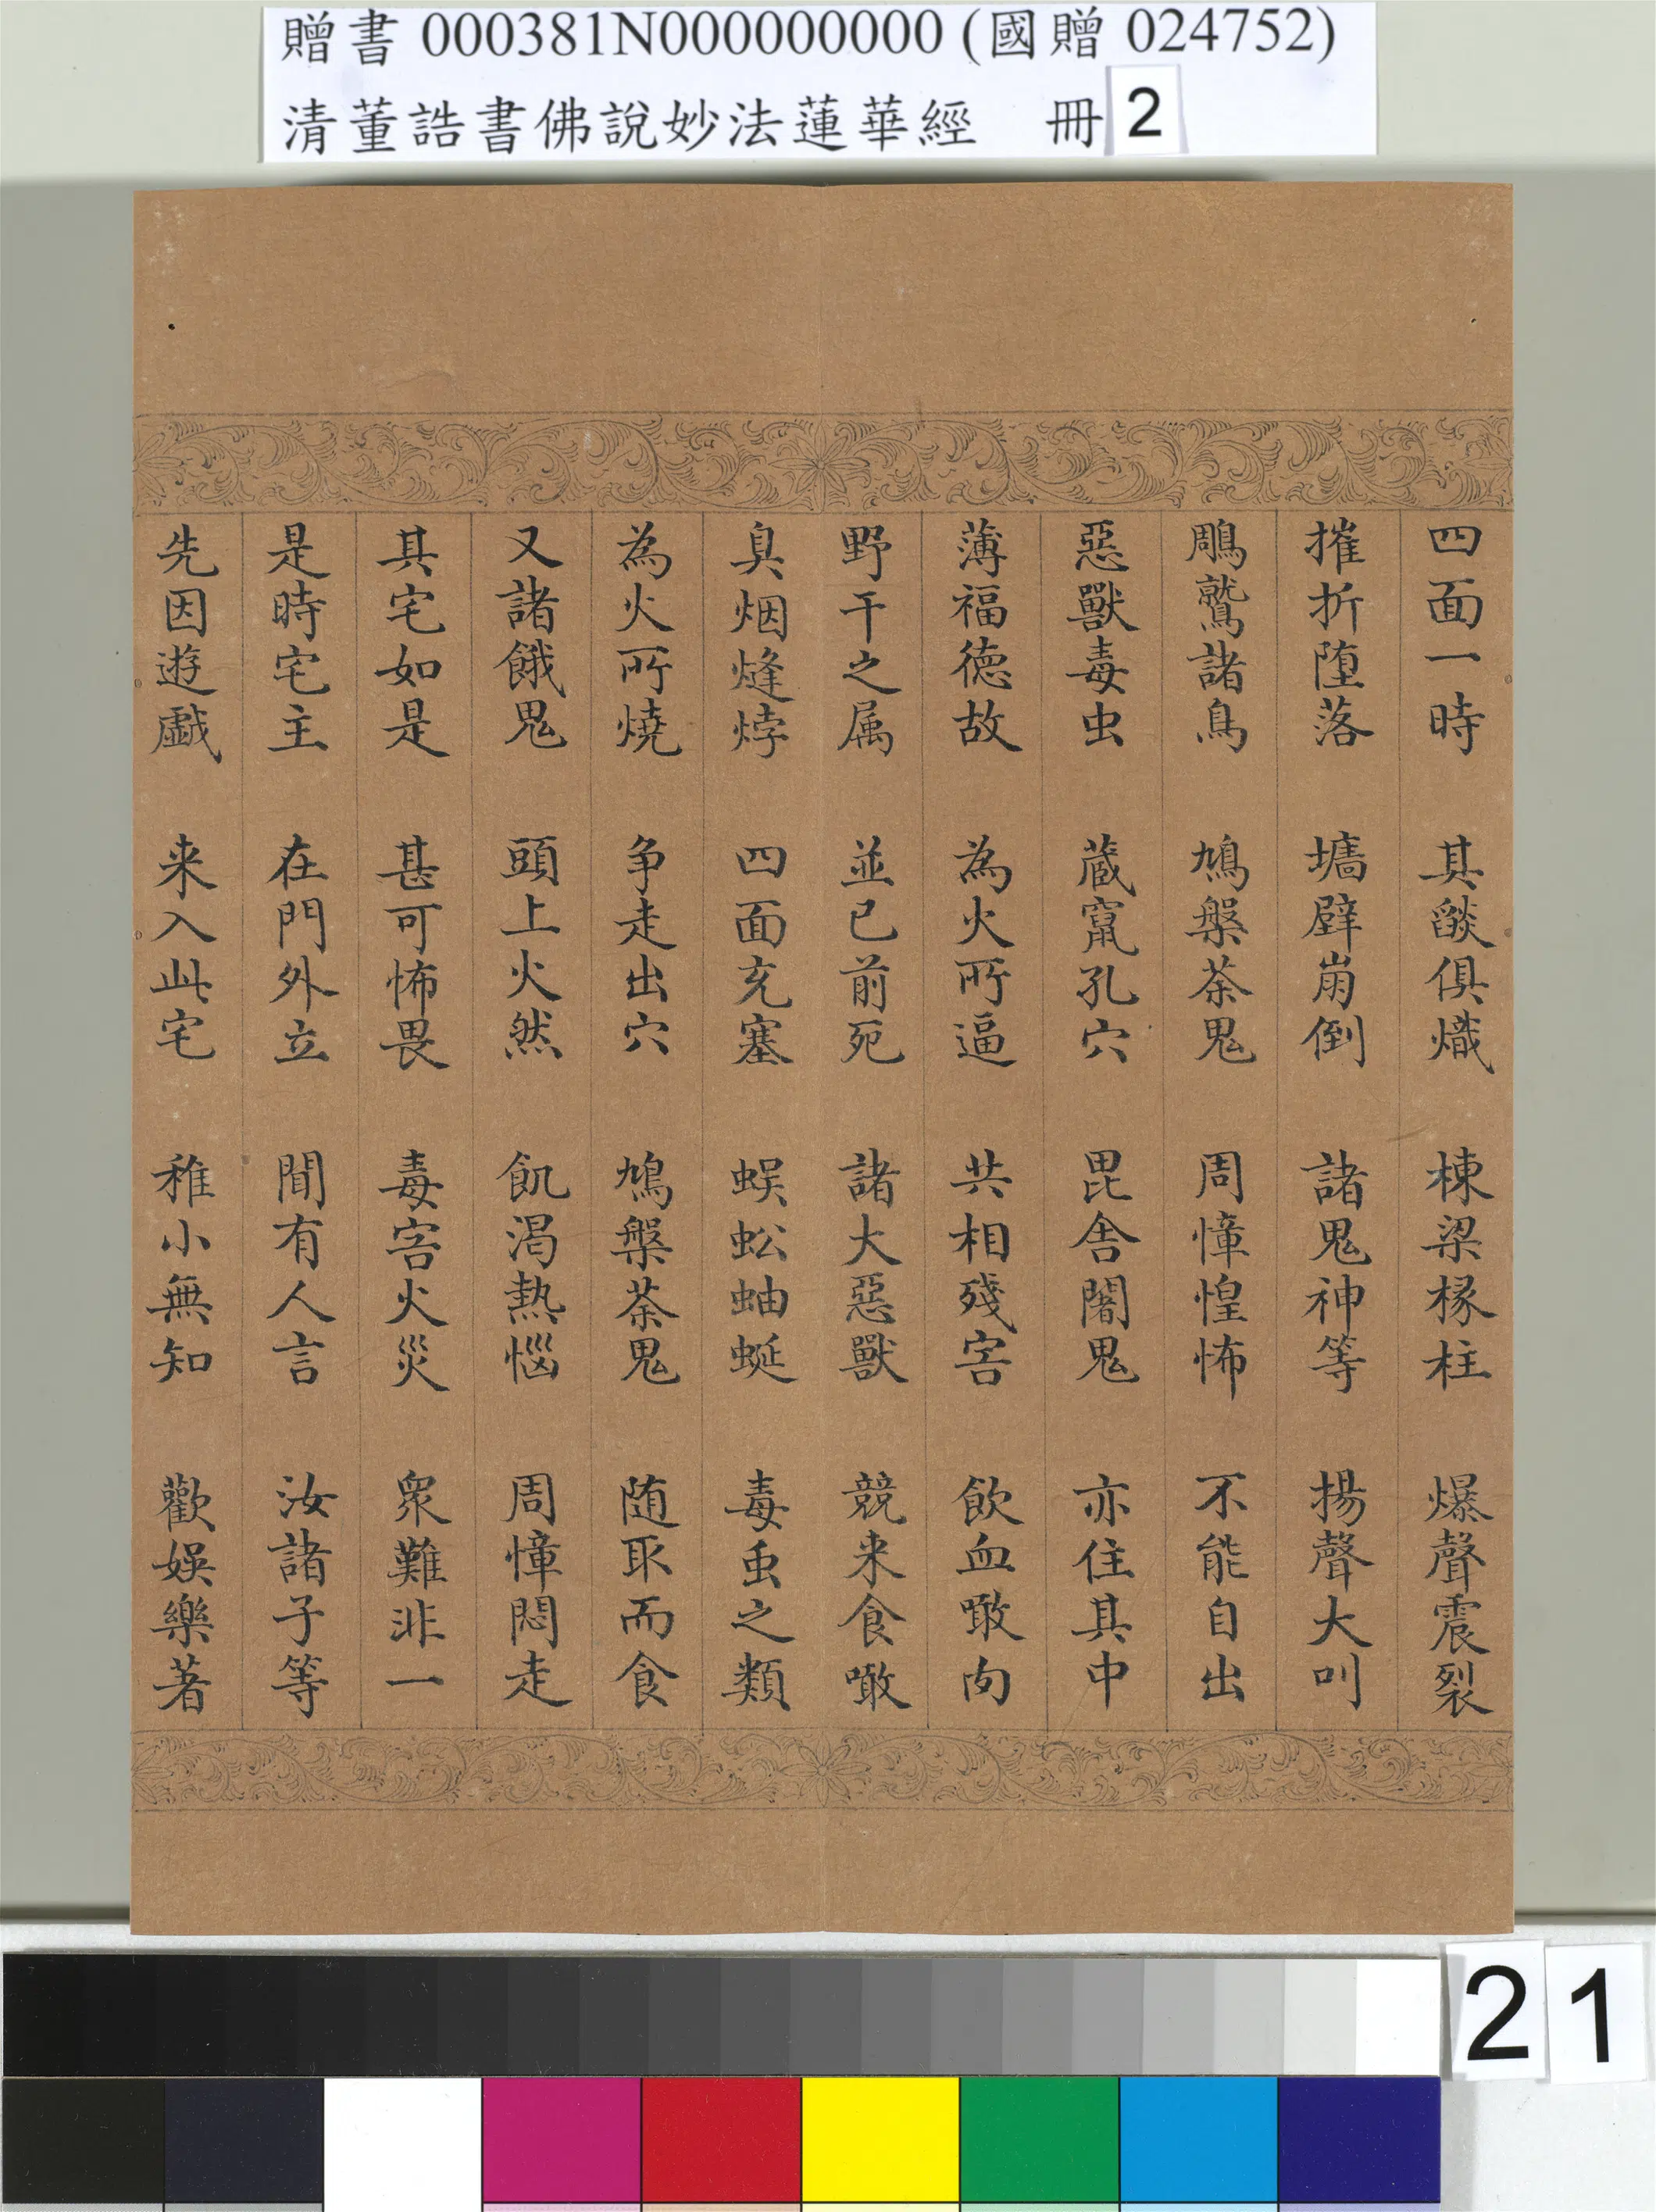 贈書 000381N000000000 (國贈 024752)
清董誥書佛說妙法蓮華經 冊 2
四面一時 其燄俱熾 棟梁椽柱 爆聲震裂
摧折墮落 墻壁崩倒 諸鬼神等 揚聲大叫
鵰鷲諸鳥 鳩槃荼鬼 周慞惶怖 不能自出
惡獸毒虫 藏竄孔穴 毘舍闍鬼 亦住其中
薄福德故 為火所逼 共相殘害 飲血噉肉
野干之属 並已前死 諸大惡獸 競来食噉
臭烟熢㶿 四面充塞 蜈蚣蚰蜒 毒虫之類
為火所燒 争走出穴 鳩槃荼鬼 随取而食
又諸餓鬼 頭上火然 飢渴熱惱 周慞悶走
其宅如是 甚可怖畏 毒害火災 衆難非一
是時宅主 在門外立 聞有人言 汝諸子等
先因遊戯 来入此宅 稚小無知 歡娛樂著
21